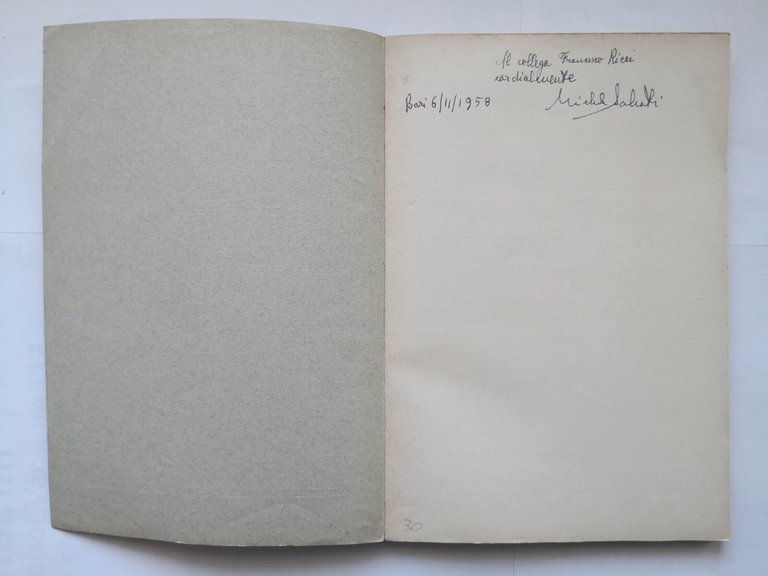 Al collega Francesco Ricci
cordialmente
Bari 6/11/1958
Michele
30